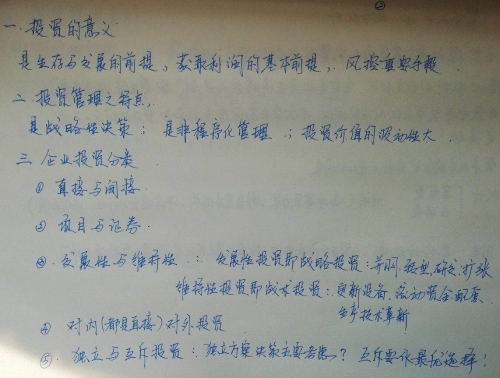 一.投资的意义
是生存与发展的前提,获取利润的基本前提,风控重要手段.
二.投资管理之特点.
是战略性决策;是非程序化管理;投资价值的波动性大.
三.企业投资分类
① 直接与间接.
② 项目与证券.
③.发展性与维持性:发展性投资即战略投资:并购.转型.研发.扩张
维持性投资即战术投资:更新设备.流动资金配套.
生产技术革新
④ 对内(都是直接)对外投资
⑤.独立与互斥投资:独立方案决策主要考虑?互斥要依最优选择!